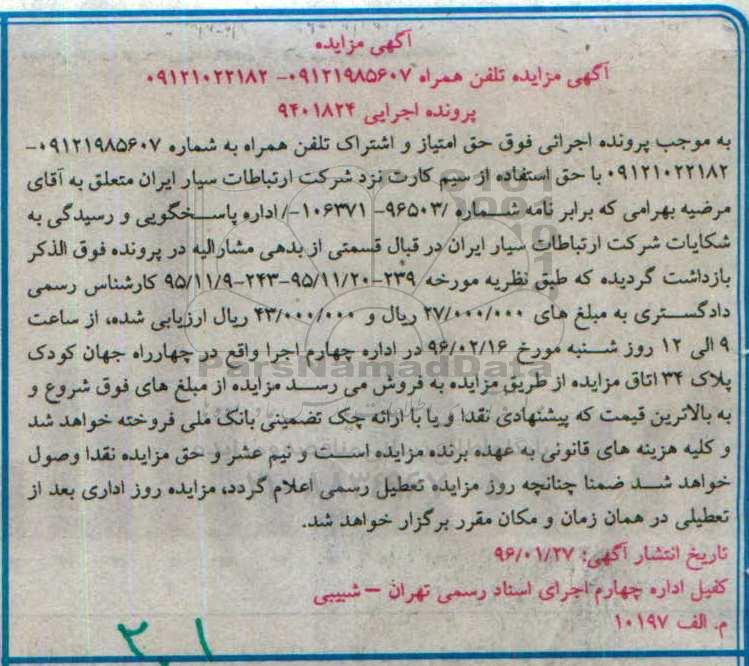 آگهی مزایده
آگهی مزایده تلفن همراه ۰۹۱۲۱۹۸۵۶۰۷- ۰۹۱۲۱۰۲۲۱۸۲
پرونده اجرایی ۹۴۰۱۸۲۴
به موجب پرونده اجرائی فوق حق امتیاز و اشتراک تلفن همراه به شماره ۰۹۱۲۱۹۸۵۶۰۷-
۰۹۱۲۱۰۲۲۱۸۲ با حق استفاده از سیم کارت نزد شرکت ارتباطات سیار ایران متعلق به آقای
مرضیه بهرامی که برابر نامه شماره /۹۶۵۰۳- ۱۰۶۳۷۱-/ اداره پاسخگویی و رسیدگی به
شکایات شرکت ارتباطات سیار ایران در قبال قسمتی از بدهی مشارالیه در پرونده فوق الذکر
بازداشت گردیده که طبق نظریه مورخه ۲۳۹-۹۵/۱۱/۲۰-۲۴۳-۹۵/۱۱/۹ کارشناس رسمی
دادگستری به مبلغ های ۲۷/۰۰۰/۰۰۰ ریال و ۴۳/۰۰۰/۰۰۰ ریال ارزیابی شده، از ساعت
۹ الی ۱۲ روز شنبه مورخ ۹۶/۰۲/۱۶ در اداره چهارم اجرا واقع در چهارراه جهان کودک
پلاک ۳۴ اتاق مزایده از طریق مزایده به فروش می رسد مزایده از مبلغ های فوق شروع و
به بالاترین قیمت که پیشنهادی نقدا و یا با ارائه چک تضمینی بانک ملی فروخته خواهد شد
و کلیه هزینه های قانونی به عهده برنده مزایده است و نیم عشر و حق مزایده نقدا وصول
خواهد شد ضمنا چنانچه روز مزایده تعطیل رسمی اعلام گردد، مزایده روز اداری بعد از
تعطیلی در همان زمان و مکان مقرر برگزار خواهد شد.
تاریخ انتشار آگهی: ۹۶/۰۱/۲۷
کفیل اداره چهارم اجرای اسناد رسمی تهران – شبیبی
م. الف ۱۰۱۹۷
ParsNamadData